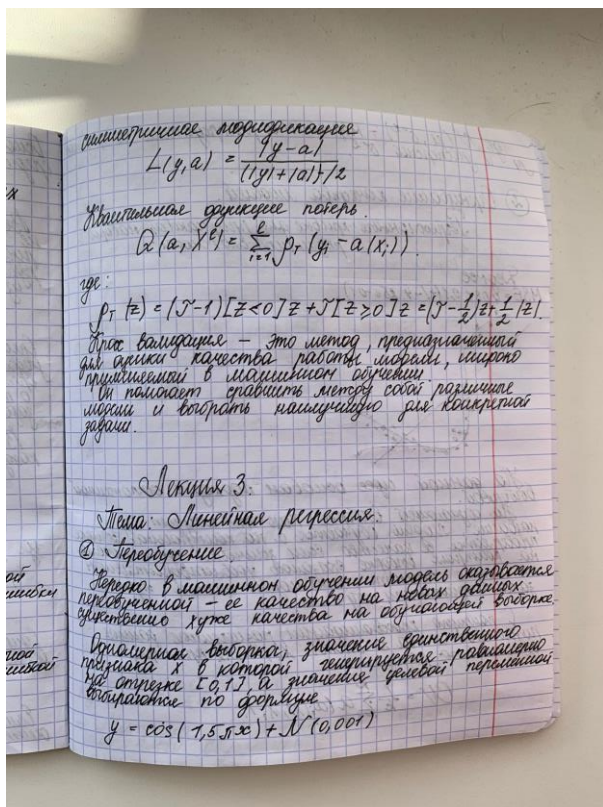 симметричная модификация
L(y,a) = |y-a| / (|y|+|a|)/2
Квантильная функция потерь.
Q(a, X^ℓ) = ℓ Σ i=1 ρ_τ (y_i - a(x_i)).
где:
ρ_τ (z) = (τ-1)[z<0]z + τ[z≥0]z = (τ-1/2)z+1/2|z|.
Крос валидация – это метод, предназначенный
для оценки качества работы модели, широко
применяемой в машинном обучении.
Он помогает сравнить между собой различные
модели и выбрать наилучшую для конкретной
задачи.
Лекция 3.
Тема: Линейная регрессия.
① Переобучение
Нередко в машинном обучении модель оказывается
переобученной – ее качество на новых данных
существенно хуже качества на обучающей выборке.
Одномерная выборка, значение единственного
признака x в которой генерируется равномерно
на отрезке [0,1], а значение целевой переменной
выбираются по формуле
y = cos(1,5πx) + N(0,001)
х
ой
ошибки
ной
ошибкой